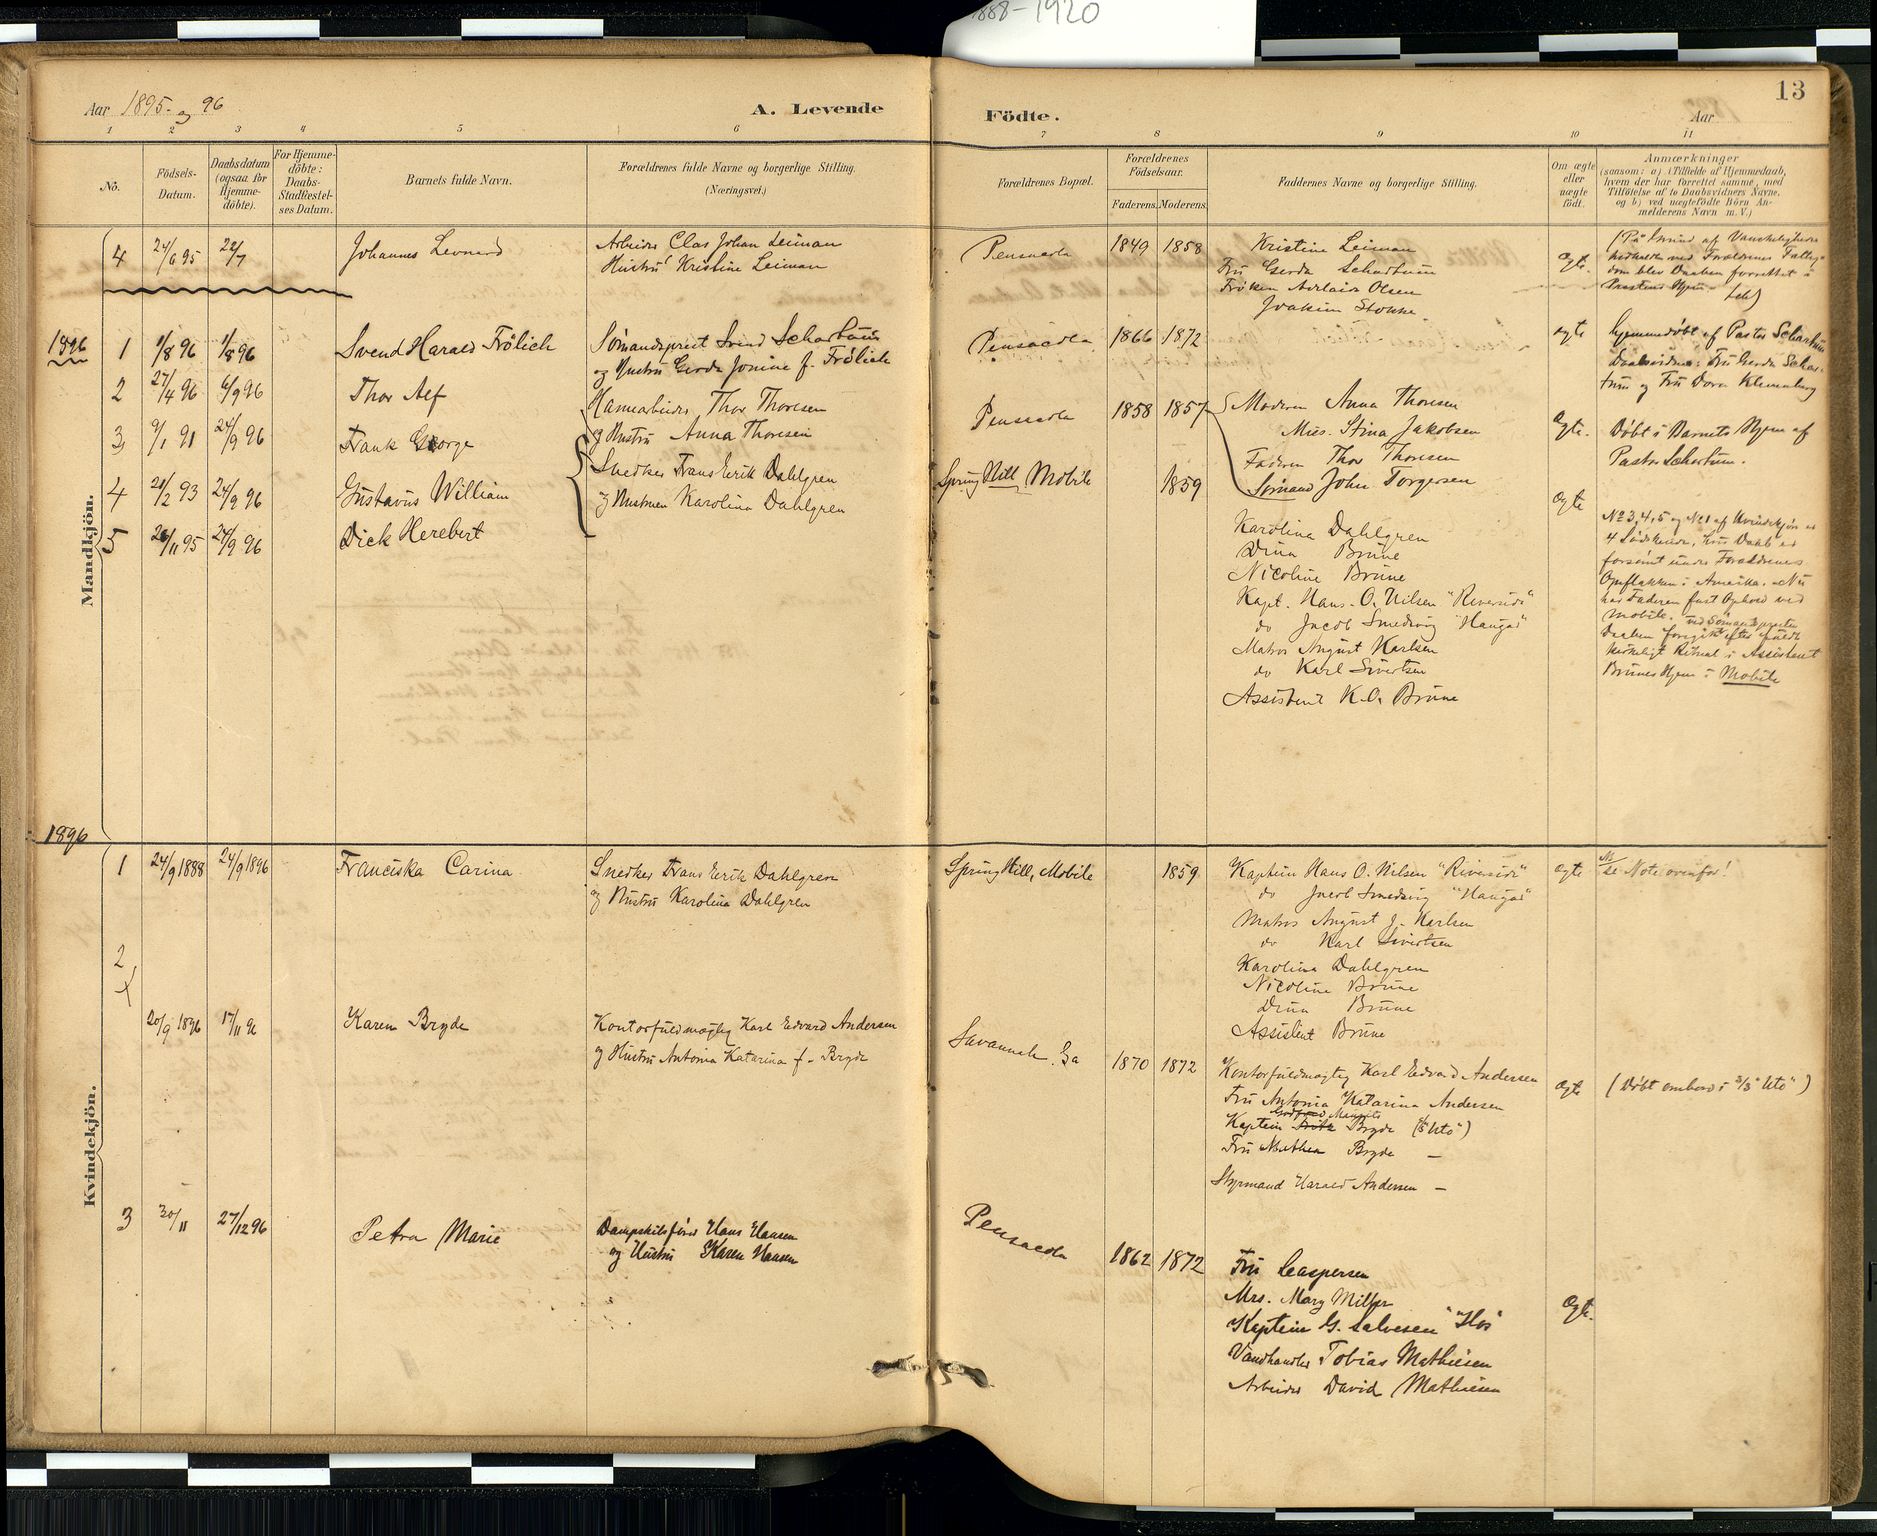 1888-1920
13
Aar 1895- og 96
A. Levende
Födte.
Aar
1 2 3 4 5 6 7 8 9 10 11
No.
Födsels-
Datum.
Daabsdatum
(ogsaa for
Hjemme-
döbte).
For Hjemme-
döbte:
Daabs-
Stadfæstel-
ses Datum.
Barnets fulde Navn.
Forældrenes fulde Navne og borgerlige Stilling.
(Næringsvei.)
Forældrenes Bopæl.
Forældrenes
Födselsaar.
Faderens. Moderens.
Faddernes Navne og borgerlige Stilling.
Om ægte
eller
uægte
født.
Anmærkninger
(saasom: a) (Tilfælde af Hjemmedaab,
hvem der har forrettet samme, med
Tilföielse af to Daabsvidners Navne,
og b) ved uægtefödte Börn An-
melderens Navn m. V.)
Mandkjön.
4 24/6 95 22/7 Johannes Leonard
Arbeider Clas Johan Leiman
Hustru Kristine Leiman
Pensacola 1849 1858
Kristine Leiman
Fru Gerda Schartum
Frøken Adelaide Olsen
Joakim Stokke
Ægte.
(Paa Grund af Vanskeligheder
ved Forældrenes Fattig-
dom blev Daaben forrettet i
Prestens Hjem.
1896
1 1/8 96 1/8 96 Svend Harald Frölich
Sømandsprest Svend Schartum
og Hustru Gerda Jonine f. Frölich
Pensacola 1866 1872
ægte
hjemmedøbt af Pastor Schartum
Daabsvidner: Fru Gerda Schar-
tum og Fru Dora Klemenberg
2 27/4 96 6/9 96 Thor Alf
Havnearbeider, Thor Thoresen
og Hustru Anna Thoresen
Pensacola 1858 1857
Moderen Anna Thoresen
Mrs. Stina Jakobsen
Faderen Thor Thoresen
Sømand John Torgersen
Ægte.
Døbt i Barnets Hjem af
Pastor Schartum.
3 9/1 91 24/9 96 Frank George
4 20/2 93 24/9 96 Gustavus William
5 26/11 95 24/9 96 Dick Herebert
Snedker Frans Erik Dahlgren
og Hustruen Karolina Dahlgren
Spring Hill Mobile 1859
Karolina Dahlgren
Dina Brune
Nicoline Brune
Kapt. Hans O. Nilsen "Riverside"
do Jacob Smedsvig "Hauga"
Matros August Karlsen
do Karl Sivertsen
Assistent K. O. Brune
Ægte
No 3, 4, 5 og No 1 af Kvindekjøn er
4 Sødskende, hvis Daab er
forsømt under Forældrenes
Omflakken i Amerika. Nu
har Faderen fast Ophold ved
Mobile. ved Sømandspresten
Daaben foregik efter fuldt
kirkeligt Ritual i Assistent
Brunes Hjem i Mobile
1896
Kvindekjön.
1 24/9 1888 24/9 1896 Franciska Carina
Snedker Frans Erik Dahlgren
og Hustru Karolina Dahlgren
Spring Hill, Mobile 1859
Kaptein Hans O. Nilsen "Riverside"
do Jacob Smedsvig "Hauga"
Matros August J. Karlsen
do Karl Sivertsen
Karolina Dahlgren
Nicoline Brune
Dina Brune
Assistent Brune
ægte
se Note ovenfor!
2
20/9 1896 17/11 96 Karen Bryde
Kontorfuldmægtig Karl Edvard Andersen
og Hustru Antonia Katarina f. Bryde
Savannah Ga 1870 1872
Kontorfuldmægtig Karl Edvard Andersen
Fru Antonia Katarina Andersen
Kaptein Bryde ("Uto")
Fru Mathea Bryde —
Styrmand Harald Andersen —
Ægte
(Døbt ombord i S/S "Uto")
3 30/11 27/12 96 Petra Marie
Dampskibsfører Hans Hansen
og Hustru Karen Hansen
Pensacola 1862 1872
Fru Caspersen
Mrs. Mary Miller
Kaptein G. Salvesen
Vandhandler Tobias Mathiesen
Arbeider David Mathiesen
Ægte.